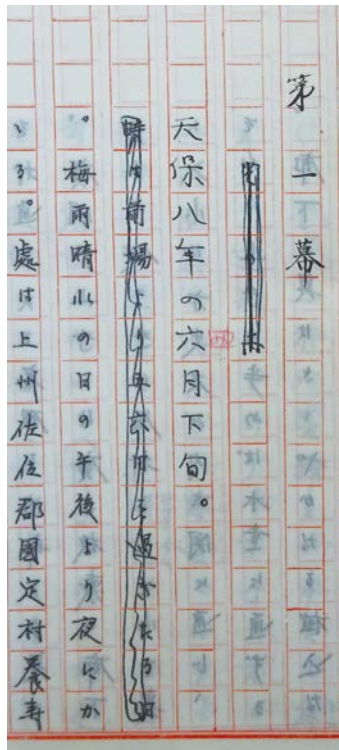 第一幕
天保八年の六月下旬。
。梅雨晴れの日の午後より夜にか
ゝる。處は上州佐位郡國定村養寿